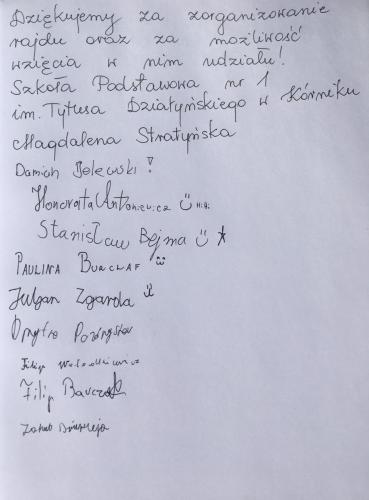 Dziękujemy za zorganizowanie
rajdu oraz za możliwość
wzięcia w nim udziału!
Szkoła Podstawowa nr 1
im. Tytusa Działyńskiego w Kórniku
Magdalena Stratyńska
Damian
Honorata Antoniewicz
Stanisław Bejma
PAULINA
Julian Zgarda
Dmytro
Filip
Filip Barczak
Jakub